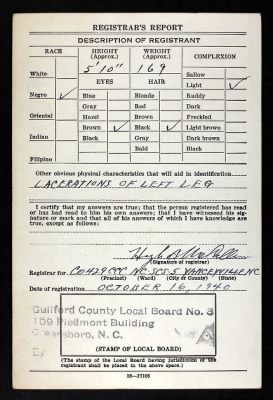 REGISTRAR'S REPORT
DESCRIPTION OF REGISTRANT
RACE HEIGHT (Approx.) WEIGHT (Approx.) COMPLEXION
5'10" 169
White Sallow
EYES HAIR Light ✓
Negro ✓ Blue Blonde Ruddy
Gray Red Dark
Oriental Hazel Brown Freckled
Brown ✓ Black ✓ Light brown
Indian Black Gray Dark brown
Bald Black
Filipino
Other obvious physical characteristics that will aid in identification
LACERATIONS OF LEFT LEG
I certify that my answers are true; that the person registered has read
or has had read to him his own answers; that I have witnessed his signa-
ture or mark and that all of his answers of which I have knowledge are
true, except as follows:
(Signature of registrar)
Registrar for CO 429 CCC NC-SCS-5 YANCEYVILLE NC
(Precinct) (Ward) (City or County) (State)
Date of registration OCTOBER 16, 1940
Guilford County Local Board No. 3
109 Piedmont Building
Greensboro, N. C.
(STAMP OF LOCAL BOARD)
(The stamp of the Local Board having jurisdiction of the
registrant shall be placed in the above space.)
16-17105